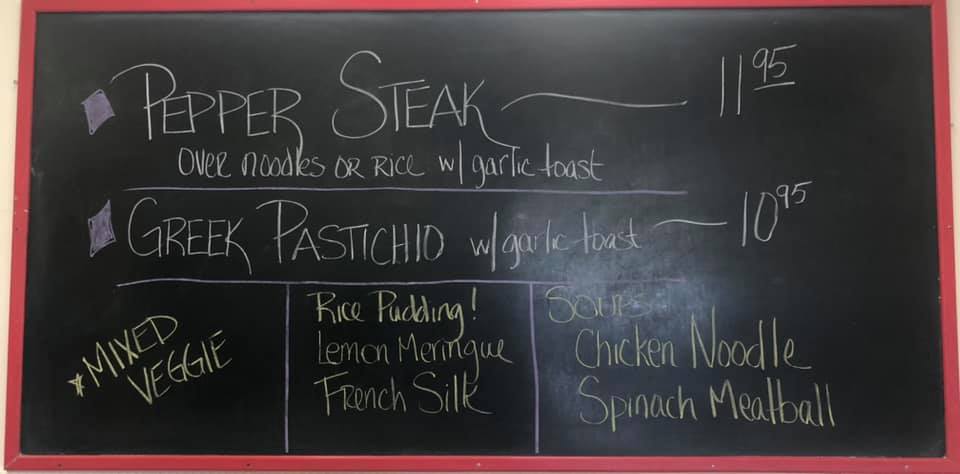 PEPPER STEAK 11 95
OVER noodles OR RICE w/ garlic toast
GREEK PASTICHIO w/ garlic toast 10 95
*MIXED
VEGGIE
Rice Pudding!
Lemon Meringue
French Silk
SOUPS
Chicken Noodle
Spinach Meatball